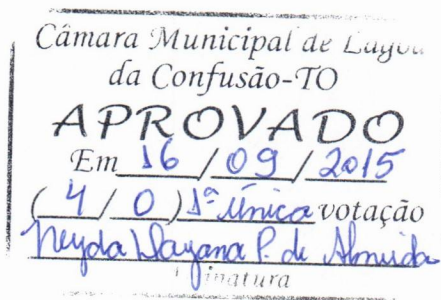 Câmara Municipal de Lagoa
da Confusão-TO
APROVADO
Em 16 / 09 / 2015
( 4 / 0 ) 1ª Única votação
Neyda Dayana P. de Almeida
Assinatura